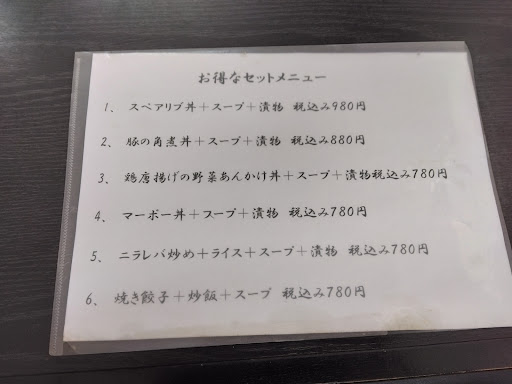 お得なセットメニュー
1、 スペアリブ丼+スープ+漬物 税込み980円
2、 豚の角煮丼+スープ+漬物 税込み880円
3、 鶏唐揚げの野菜あんかけ丼+スープ+漬物税込み780円
4、 マーボー丼+スープ+漬物 税込み780円
5、 ニラレバ炒め+ライス+スープ+漬物 税込み780円
6、 焼き餃子+炒飯+スープ 税込み780円